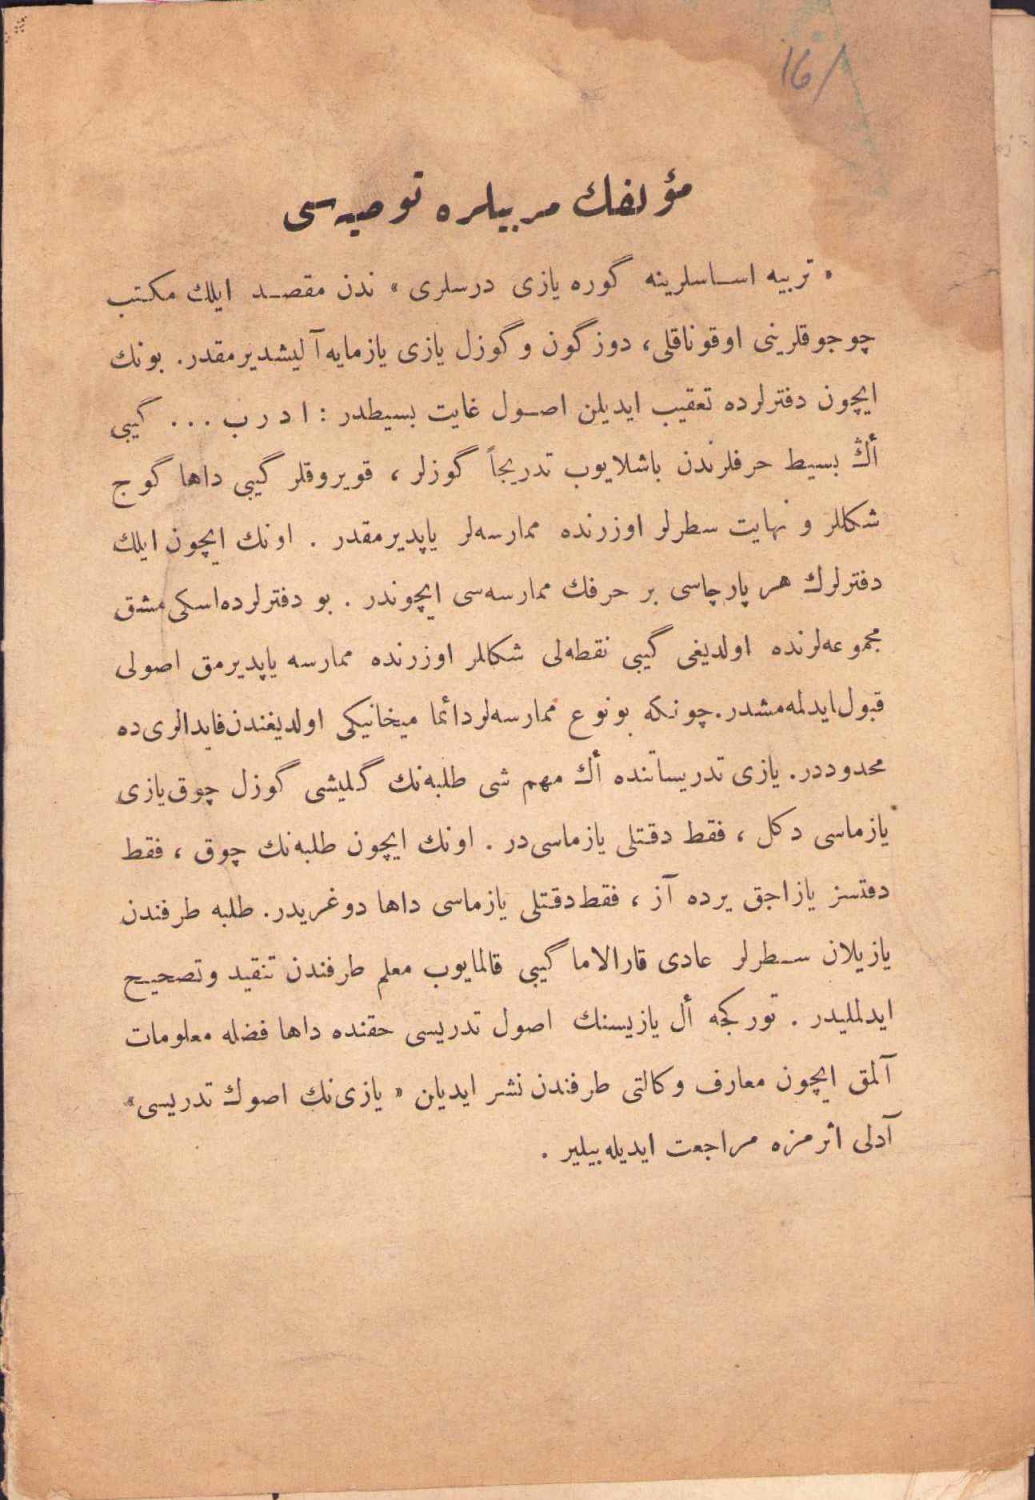 ١٦/
مؤلفك مربيلره توصيه‌سى
« تربيه اساسلرينه گوره يازى درسلرى » ندن مقصد ايلك مكتب
چوجوقلرينى اوقوناقلى، دوزگون و گوزل يازى يازمايه آليشديرمقدر. بونك
ايچون دفترلرده تعقيب ايديلن اصول غايت بسيطدر : ا د ر ب ... گيبى
أڭ بسيط حرفلرندن باشلايوب تدريجاً گوزلر ، قويروقلر گيبى داها گوج
شكللر و نهايت سطرلر اوزرنده ممارسه‌لر ياپديرمقدر . اونك ايچون ايلك
دفترلرك هر پارچاسى بر حرفك ممارسه‌سى ايچوندر . بو دفترلرده اسكى مشق
مجموعه‌لرنده اولديغى گيبى نقطه‌لى شكللر اوزرنده ممارسه ياپديرمق اصولى
قبول ايدلمه‌مشدر. چونكه بو نوع ممارسه‌لر دائما ميخانيكى اولديغندن فايدالرى ده
محدوددر. يازى تدريساتنده أك مهم شى طلبه‌نك گليشى گوزل چوق يازى
يازماسى دكل ، فقط دقتلى يازماسى‌در . اونك ايچون طلبه‌نك چوق ، فقط
دقتسز يازاجق يرده آز ، فقط دقتلى يازماسى داها دوغريدر. طلبه طرفندن
يازيلان سطرلر عادى قارالاما گيبى قالمايوب معلم طرفندن تنقيد و تصحيح
ايدلمليدر . توركجه أل يازيسنك اصول تدريسى حقنده داها فضله معلومات
آلمق ايچون معارف وكالتى طرفندن نشر ايديان « يازى‌نك اصوك تدريسى»
آدلى اثرمزه مراجعت ايديله‌بيلير .